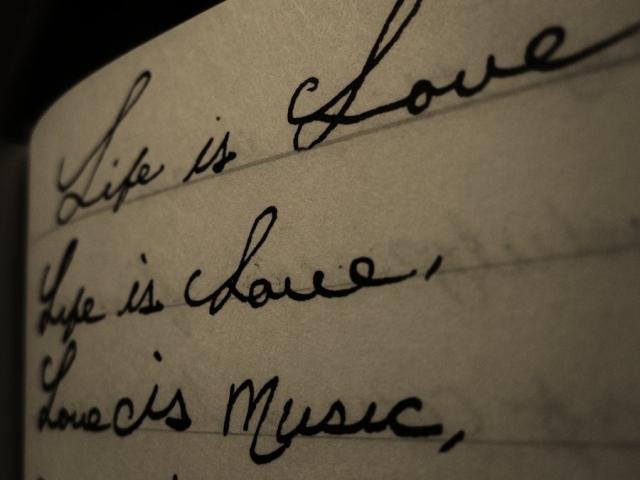 Life is Love
Life is Love,
Love is Music,